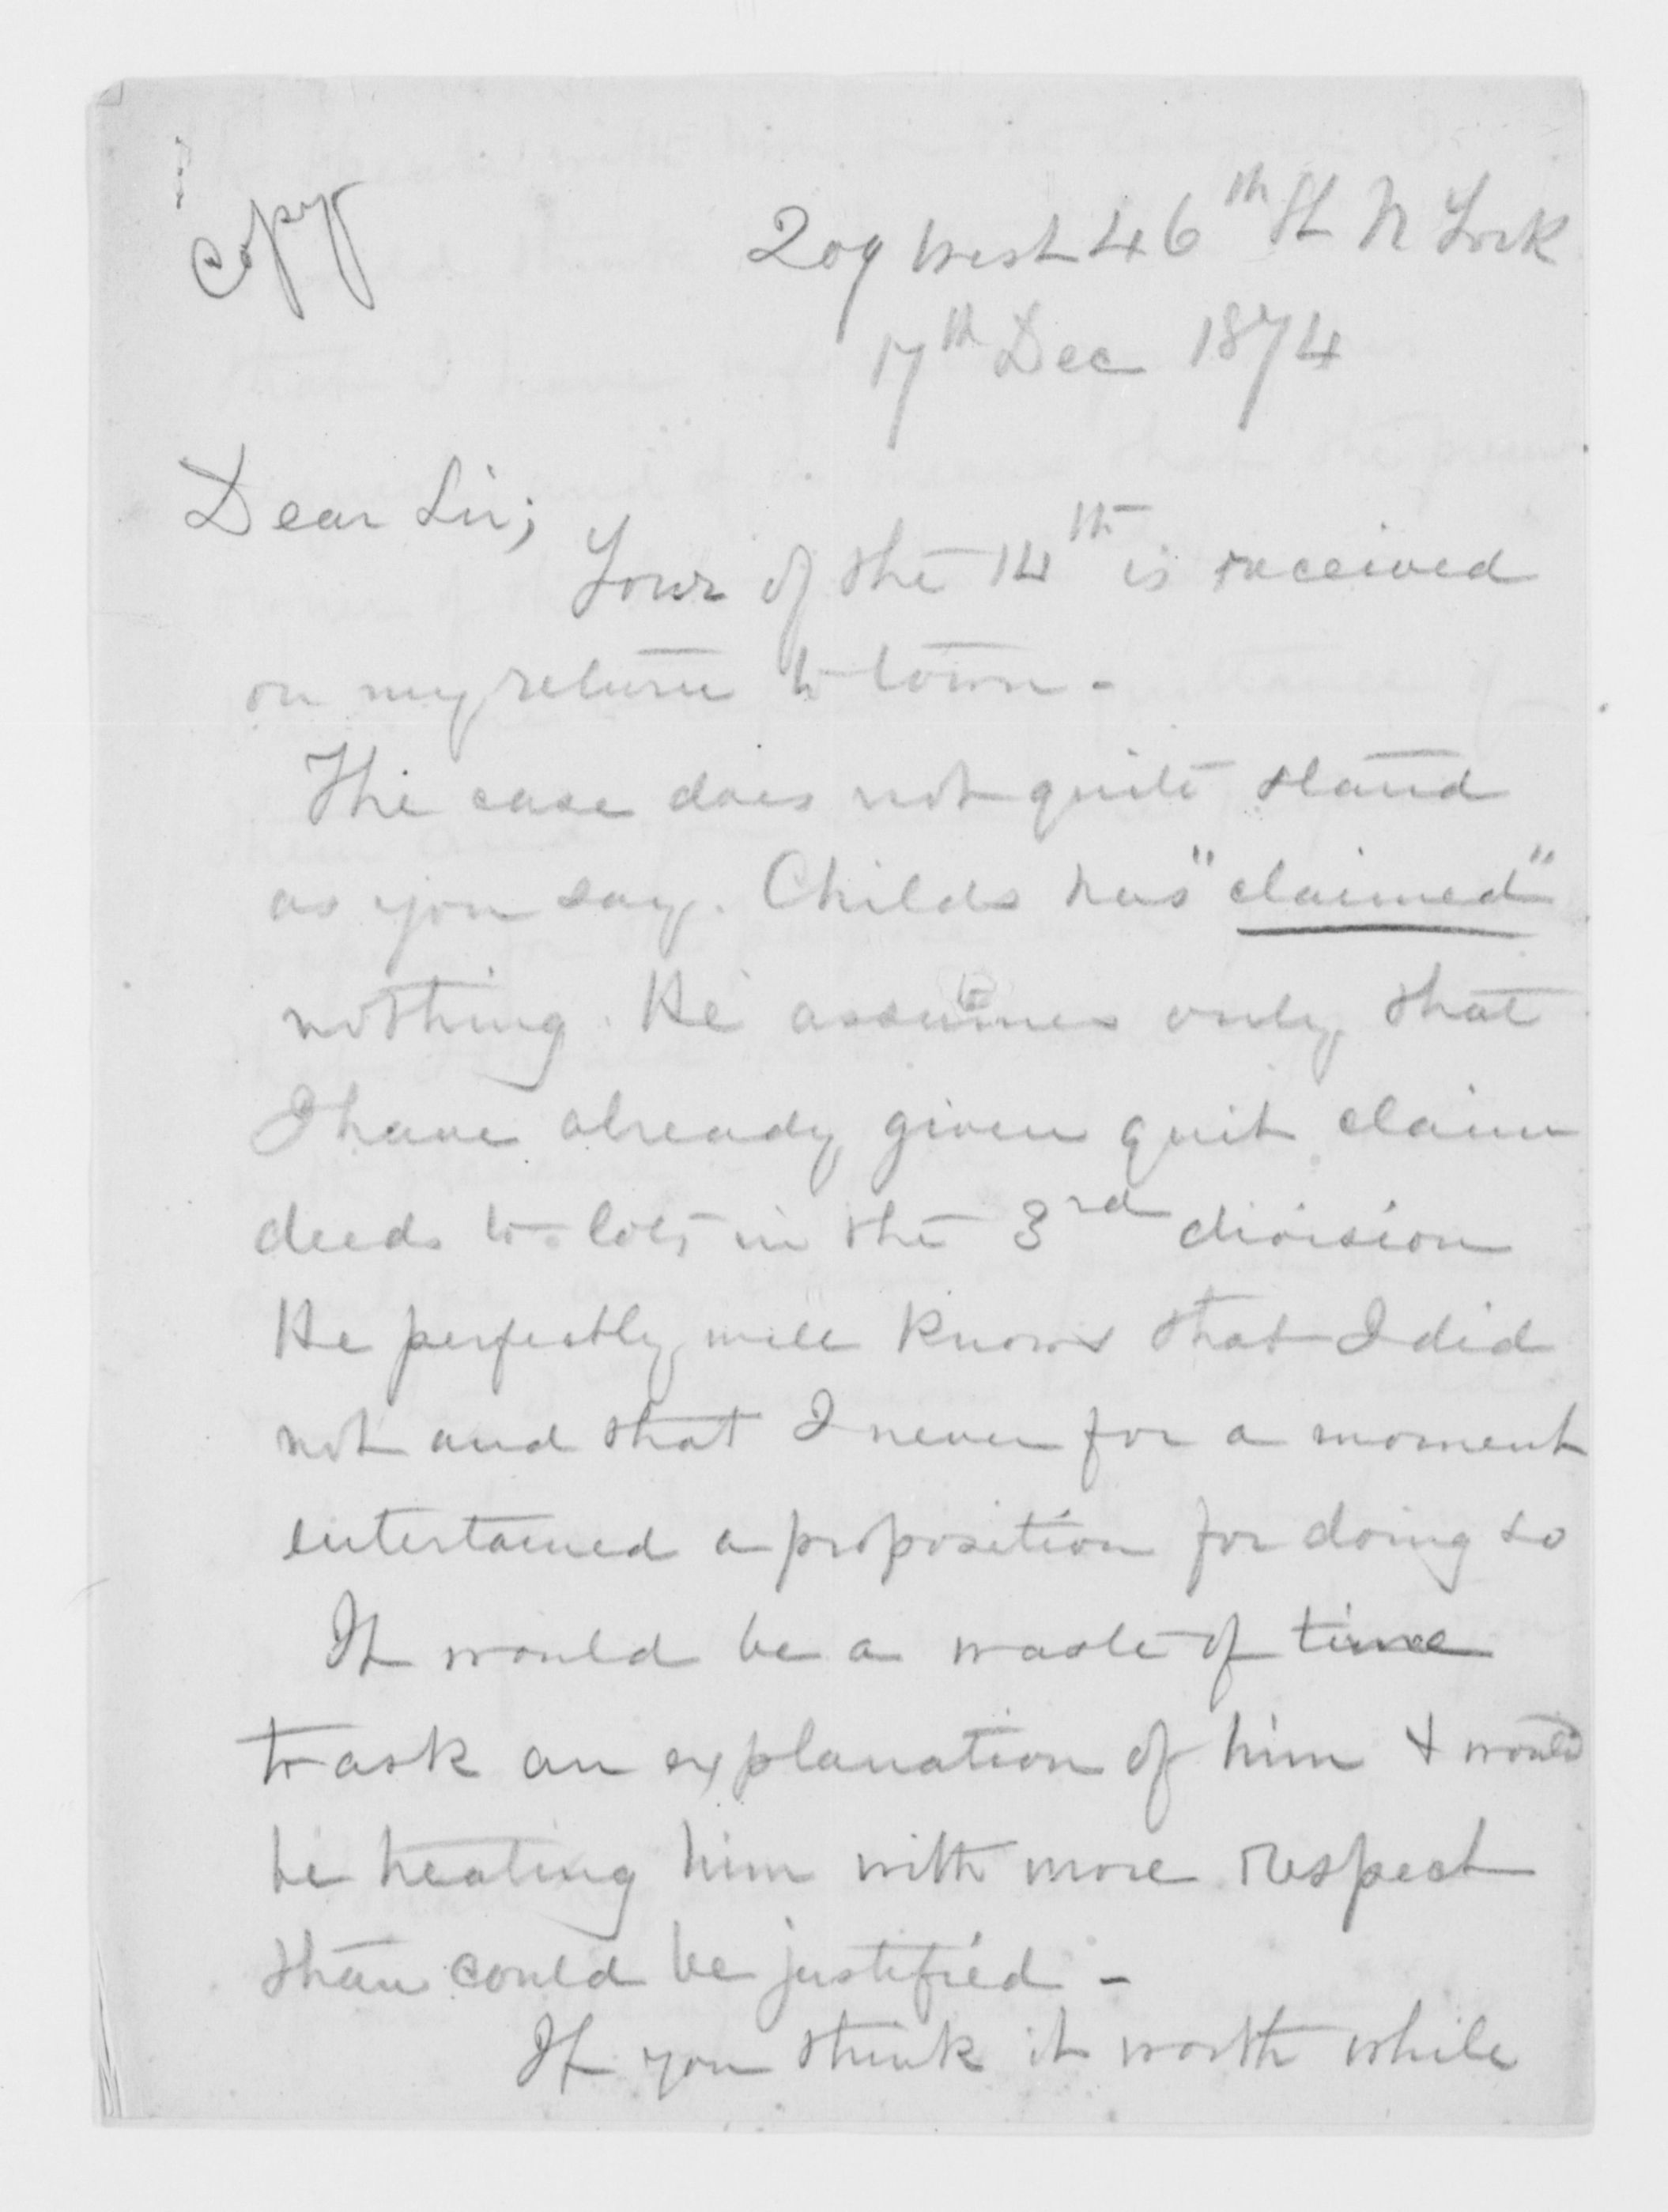 Copy
209 West 46th St N York
17th Dec 1874
Dear Sir;
Your of the 14th is received
on my return to town -
The case does not quite stand
as you say. Childs has "claimed"
nothing. He assumes only that
I have already given quit claim
deeds to lots in the 3rd division
He perfectly well knows that I did
not and that I never for a moment
entertained a proposition for doing so
It would be a waste of time
to ask an explanation of him & would
be treating him with more respect
than could be justified -
If you think it worth while